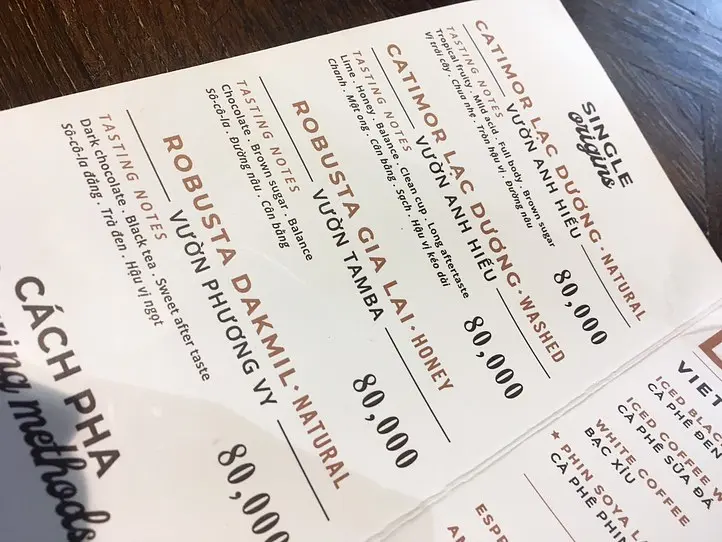 SINGLE
origins
CATIMOR LẠC DƯƠNG • NATURAL
VƯỜN ANH HIẾU
80,000
TASTING NOTES
Tropical fruity . Mild acid . Full body . Brown sugar
Vị trái cây . Chua nhẹ . Tròn hậu vị . Đường nâu
CATIMOR LẠC DƯƠNG • WASHED
VƯỜN ANH HIẾU
80,000
TASTING NOTES
Lime . Honey . Balance . Clean cup . Long aftertaste
Chanh . Mật ong . Cân bằng . Sạch . Hậu vị kéo dài
ROBUSTA GIA LAI • HONEY
VƯỜN TAMBA
80,000
TASTING NOTES
Chocolate . Brown sugar . Balance
Sô-cô-la . Đường nâu . Cân bằng
ROBUSTA DAKMIL • NATURAL
VƯỜN PHƯƠNG VY
80,000
TASTING NOTES
Dark chocolate . Black tea . Sweet after taste
Sô-cô-la đắng . Trà đen . Hậu vị ngọt
CÁCH PHA
methods
VIET
ICED BLACK
CÀ PHÊ ĐEN
ICED COFFEE W
CÀ PHÊ SỮA ĐÁ
WHITE COFFEE
BẠC XỈU
★ PHIN SOYA LA
CÀ PHÊ PHIN
ESPE